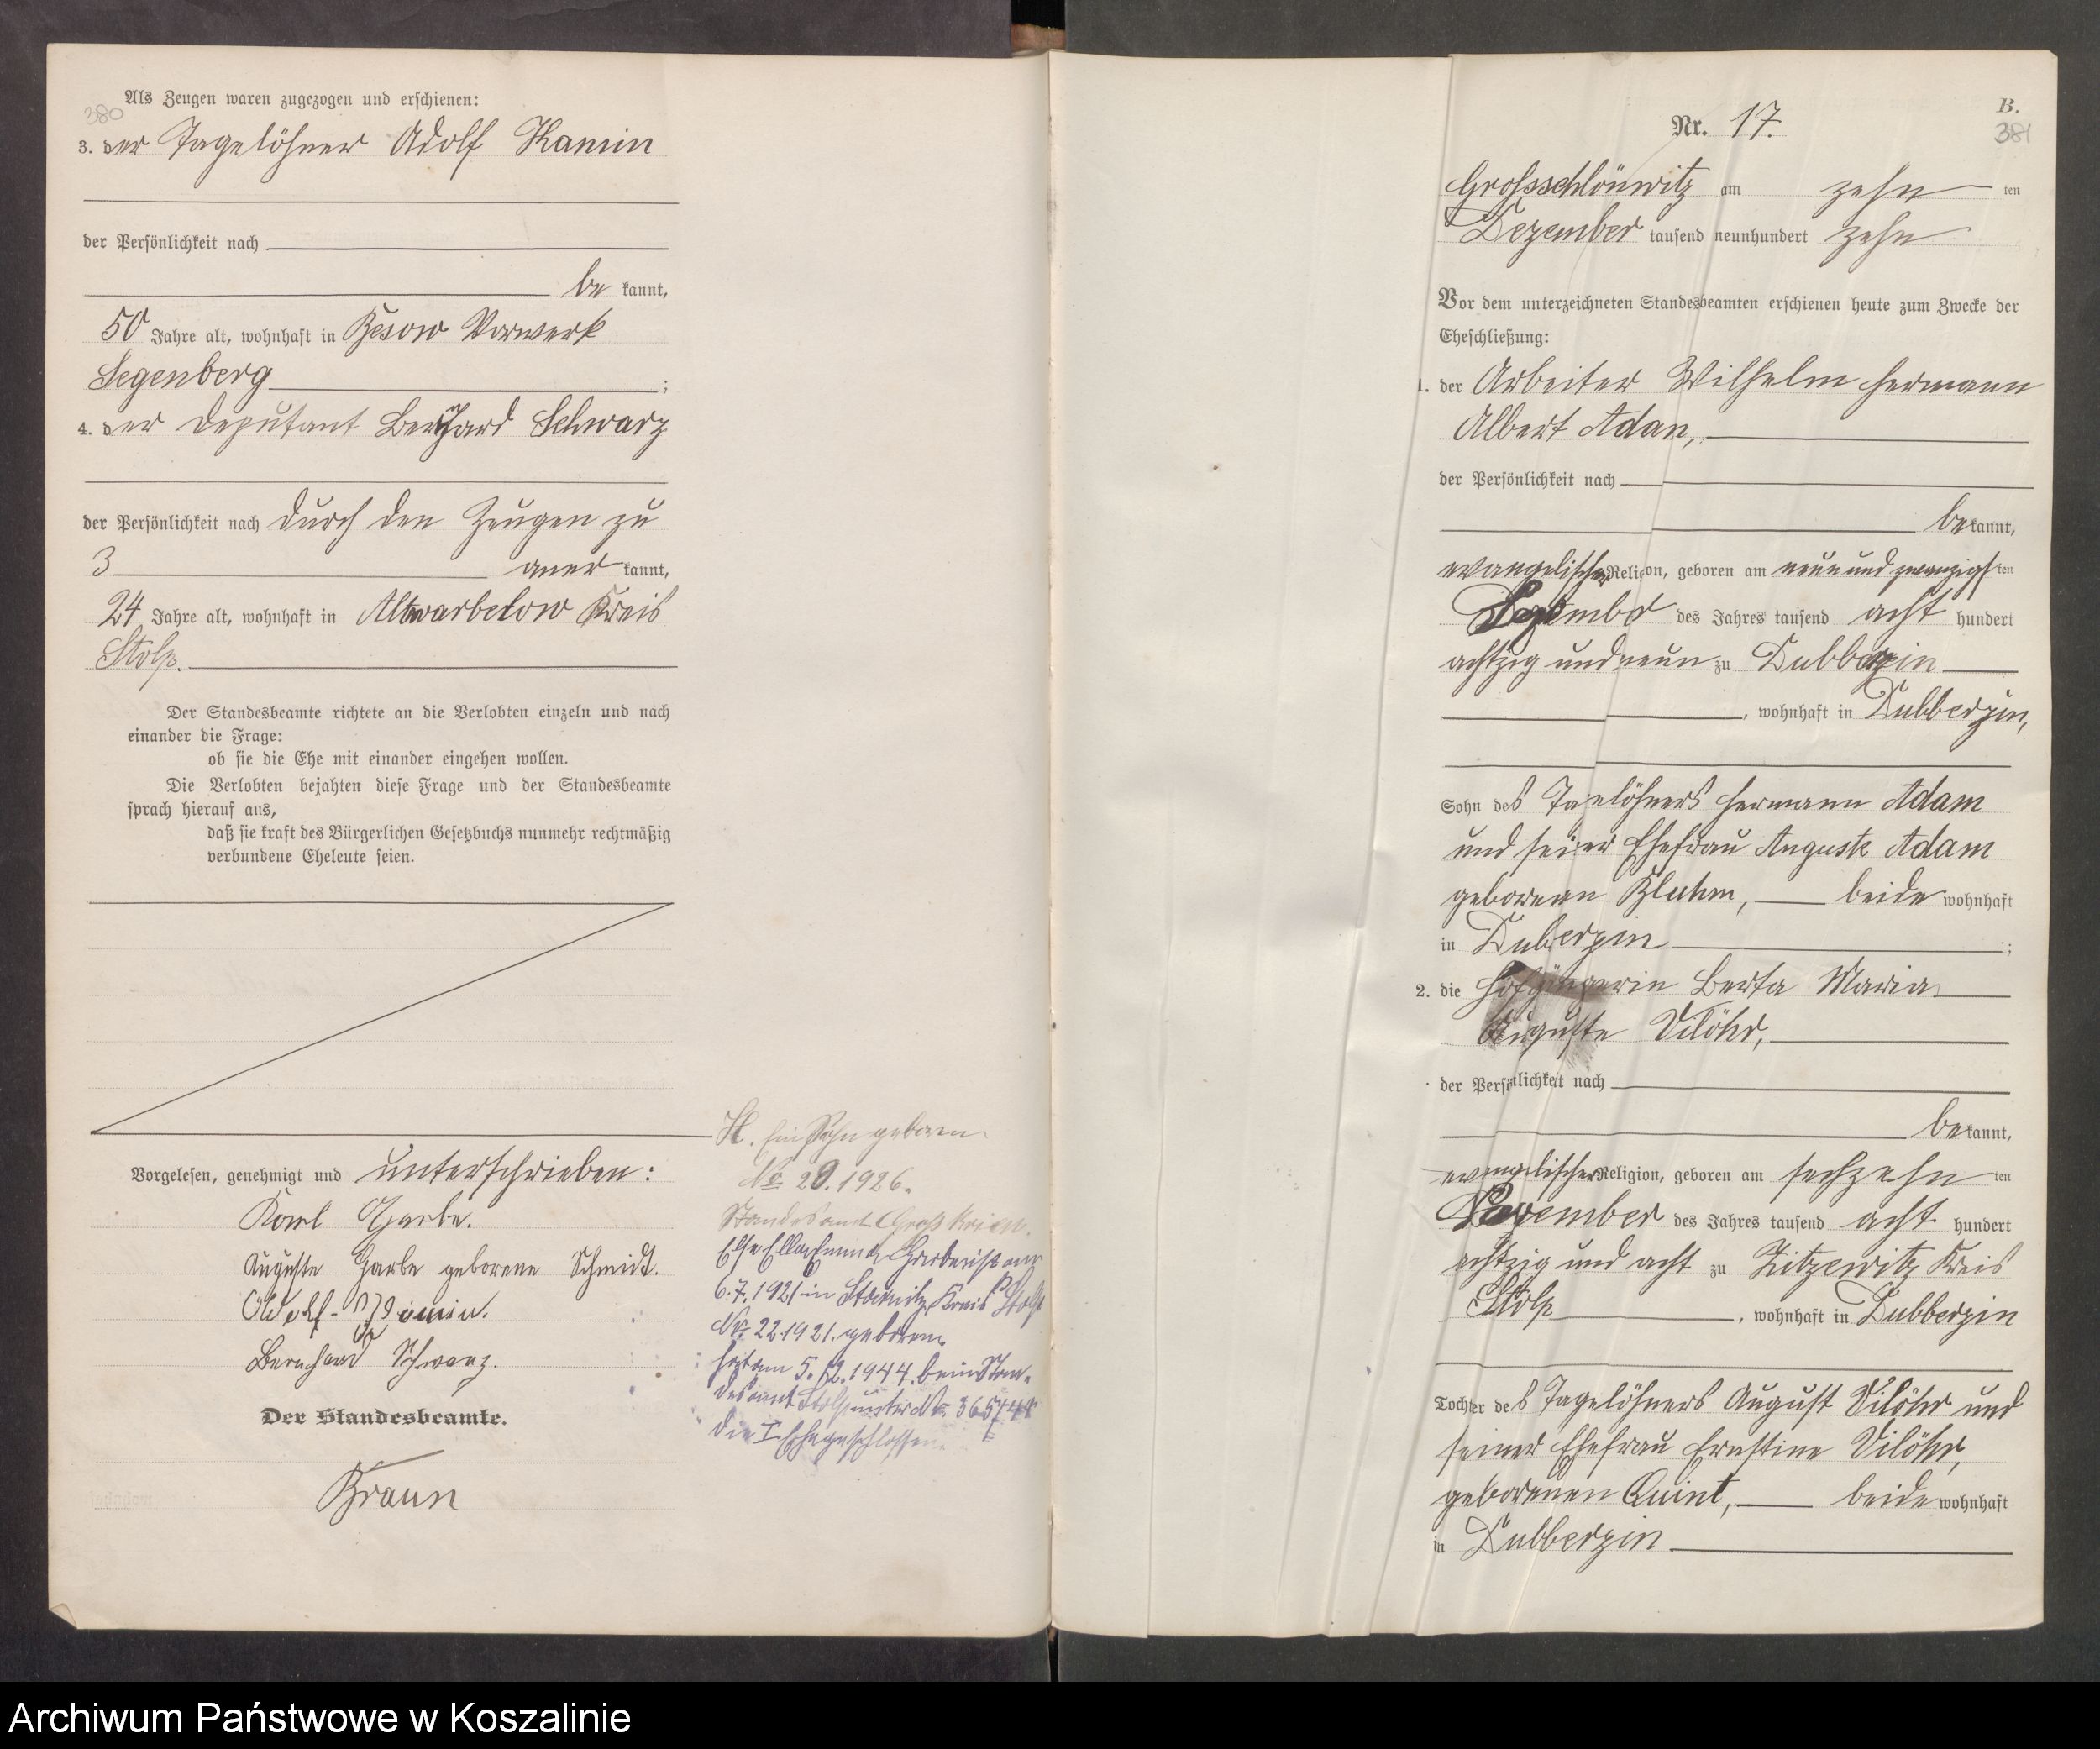 380
Als Zeugen waren zugezogen und erschienen:
3. der Tagelöhner Adolf Kamin
der Persönlichkeit nach
be kannt,
50 Jahre alt, wohnhaft in Besow Vorwerk
Segenberg ;
4. der Deputant Bernhard Schwarz
der Persönlichkeit nach durch den Zeugen zu
3 aner kannt,
24 Jahre alt, wohnhaft in Altwarbelow Kreis
Stolp.
Der Standesbeamte richtete an die Verlobten einzeln und nach
einander die Frage:
ob sie die Ehe mit einander eingehen wollen.
Die Verlobten bejahten diese Frage und der Standesbeamte
sprach hierauf aus,
daß sie kraft des Bürgerlichen Gesetzbuchs nunmehr rechtmäßig
verbundene Eheleute seien.
Vorgelesen, genehmigt und unterschrieben:
Karl Garbe.
Auguste Garbe geborene Schmidt.
Adolf Kamin.
Bernhard Schwarz.
Der Standesbeamte.
Braun
H. Ein Sohn geboren
No 20. 1926.
Standesamt Groß
Else Ella Garbe ist am
6.7.1921 in Kreis Stolp
Nr. 22.1921. geboren
hat am 5.12.1944. beim Stan-
desamt Stolp unter Nr. 365/44
die I. Ehe geschlossen.
B.
381
Nr. 17.
Grossschlönwitz am zehn ten
Dezember tausend neunhundert zehn
Vor dem unterzeichneten Standesbeamten erschienen heute zum Zwecke der
Eheschließung:
1. der Arbeiter Wilhelm Hermann
Albert Adam,
der Persönlichkeit nach
bekannt,
evangelischer Religion, geboren am neun und zwanzigsten
September des Jahres tausend acht hundert
achtzig und neun zu Dubberzin
, wohnhaft in Dubberzin,
Sohn des Tagelöhners Hermann Adam
und seiner Ehefrau Auguste Adam
geborenen Bluhm, beide wohnhaft
in Dubberzin ;
2. die Hofgängerin Berta Maria
Auguste Vilöhr,
der Persönlichkeit nach
bekannt,
evangelischer Religion, geboren am sechzehn ten
November des Jahres tausend acht hundert
achtzig und acht zu Zitzewitz Kreis
Stolp , wohnhaft in Dubberzin
Tochter des Tagelöhners August Vilöhr und
seiner Ehefrau Ernstine Vilöhr,
geborenen Quint, beide wohnhaft
in Dubberzin
Archiwum Państwowe w Koszalinie